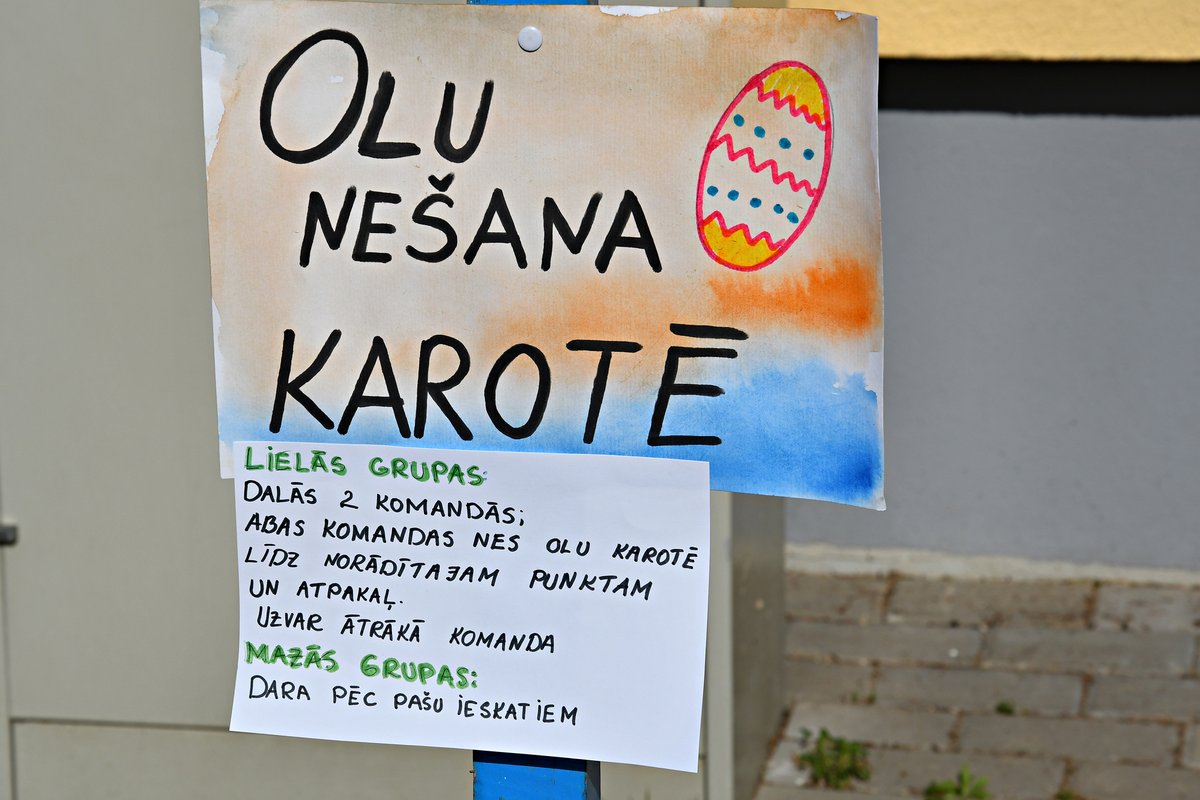 OLU
NEŠANA
KAROTĒ
LIELĀS GRUPAS:
DALĀS 2 KOMANDĀS;
ABAS KOMANDAS NES OLU KAROTĒ
LĪDZ NORĀDĪTAJAM PUNKTAM
UN ATPAKAĻ.
UZVAR ĀTRĀKĀ KOMANDA
MAZĀS GRUPAS:
DARA PĒC PAŠU IESKATIEM